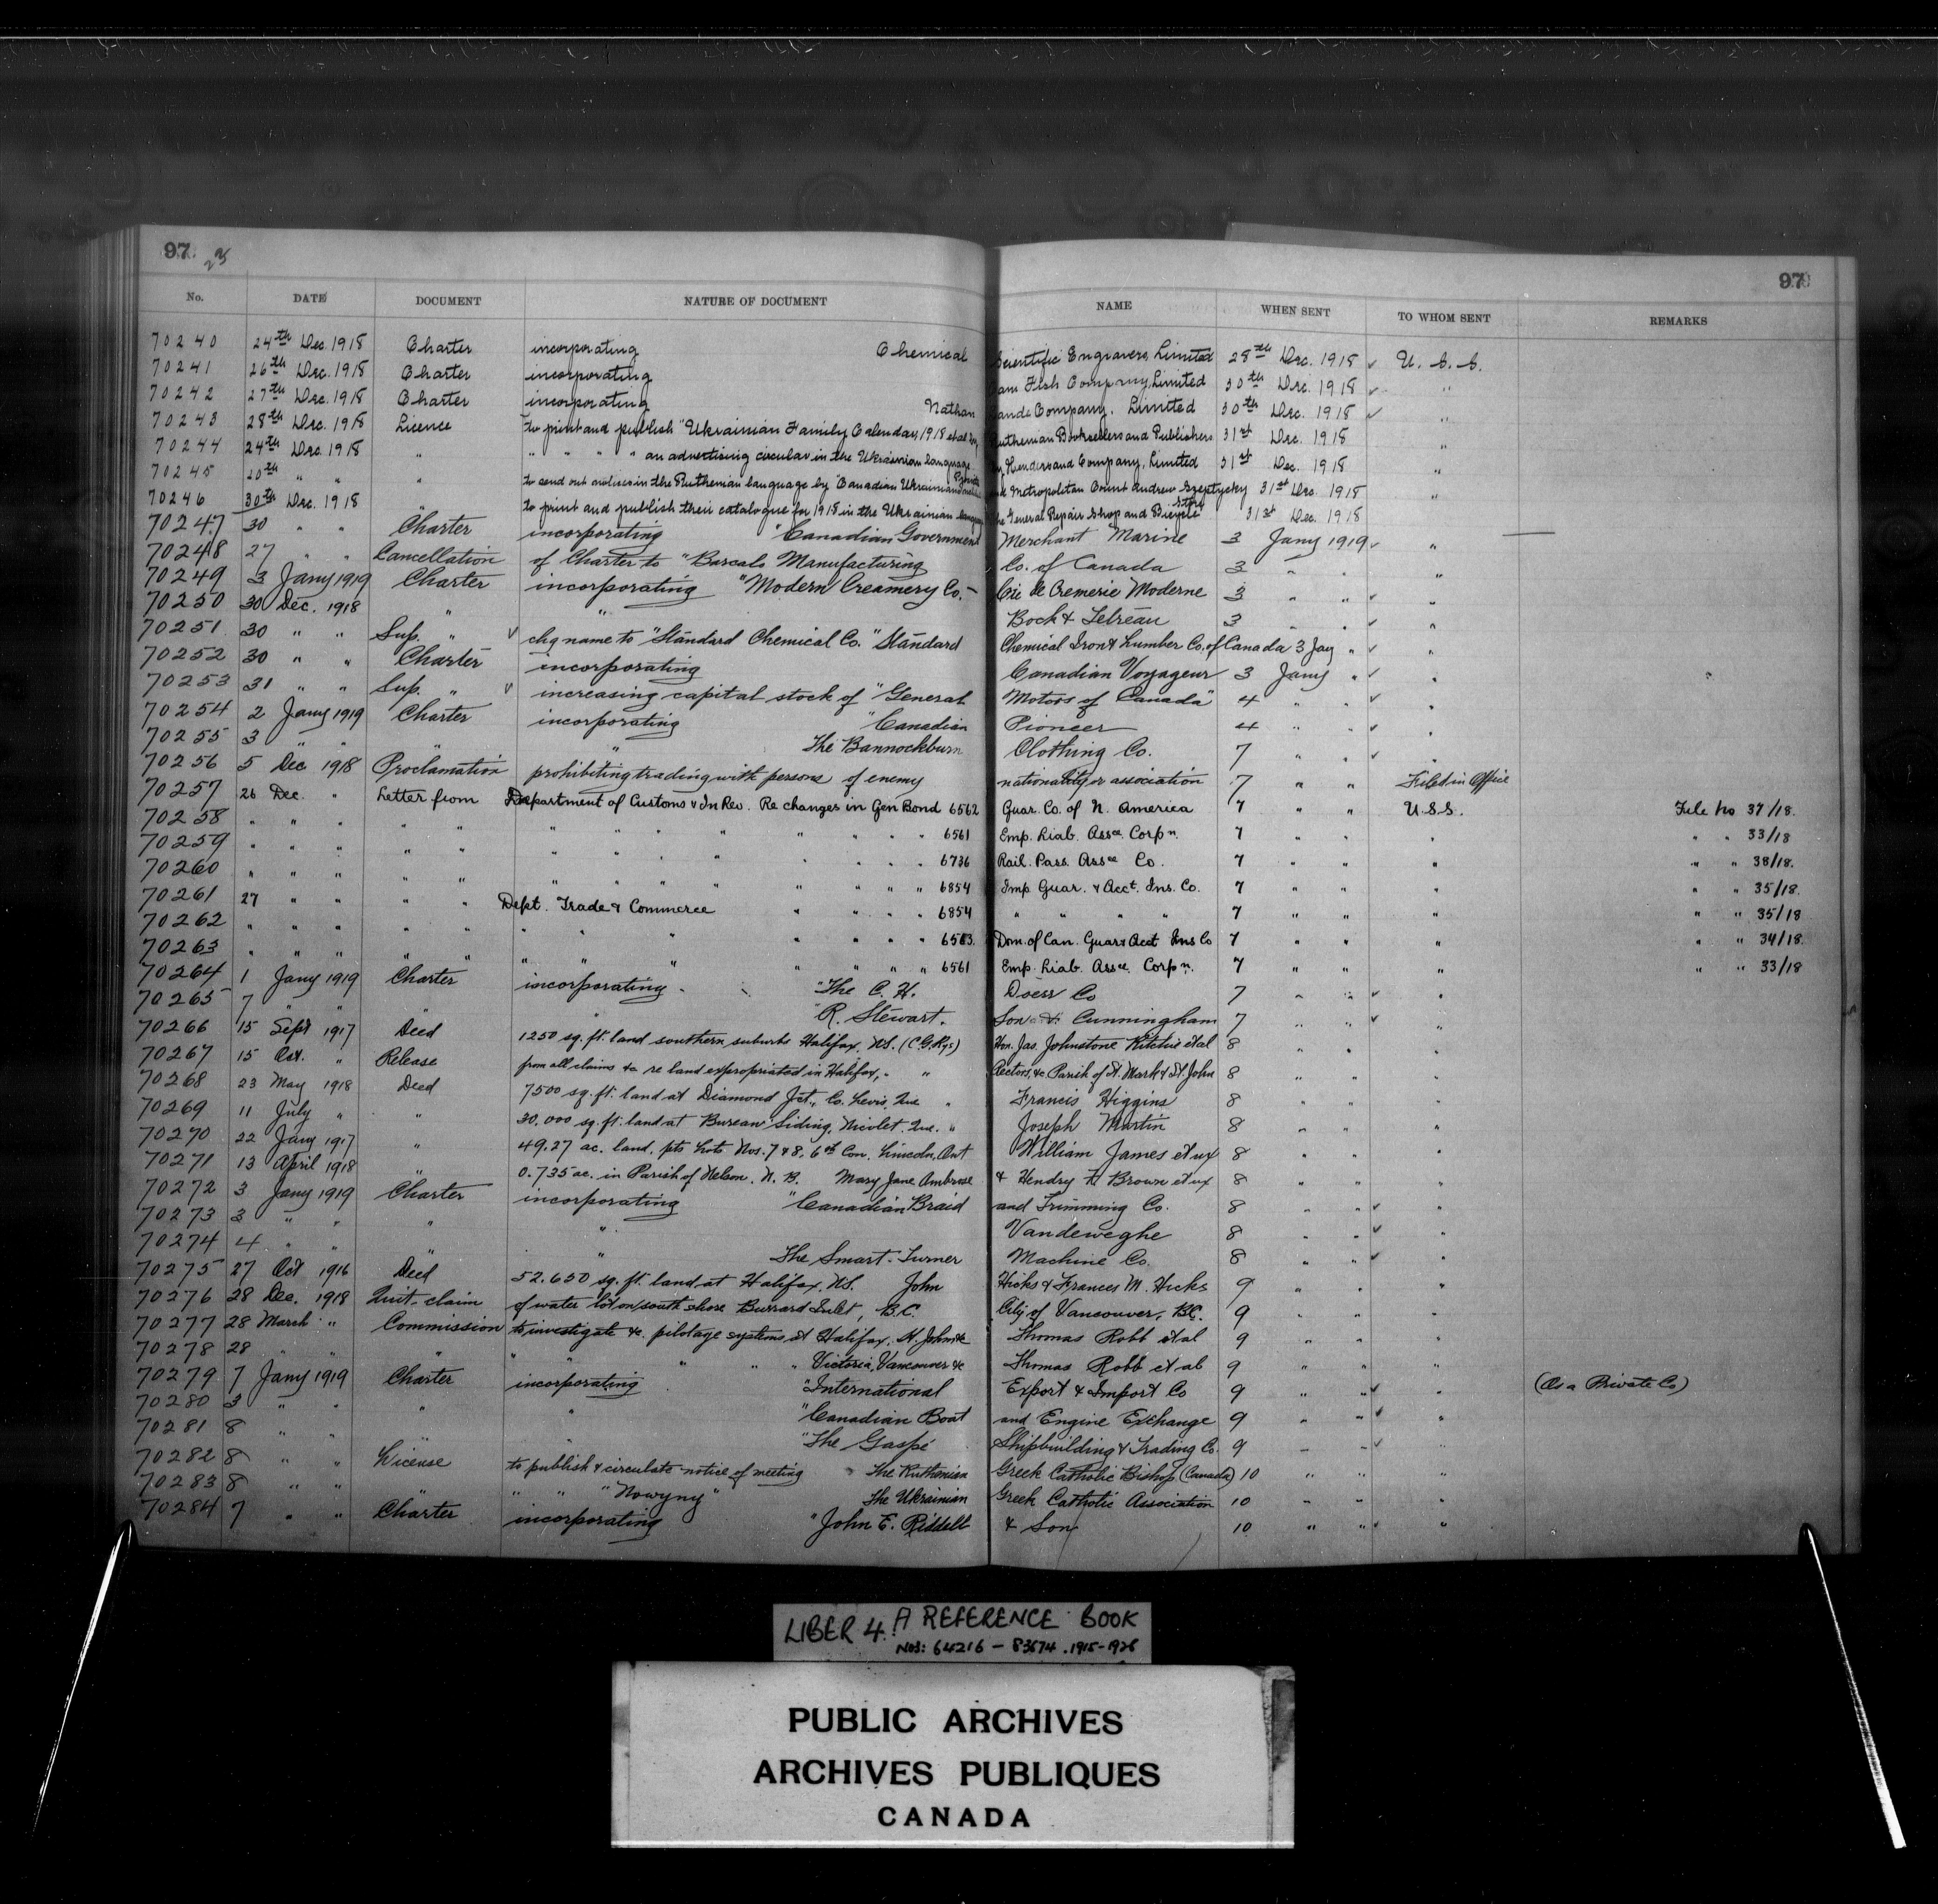 97
97
No. DATE DOCUMENT NATURE OF DOCUMENT NAME WHEN SENT TO WHOM SENT REMARKS
70240 24th Dec. 1918 Charter incorporating Chemical Scientific Engravers, Limited 28th Dec. 1918 ✓ U. S. S.
70241 26th Dec. 1918 Charter incorporating Fish Company, Limited 30th Dec. 1918 ✓ "
70242 27th Dec. 1918 Charter incorporating Nathan Company, Limited 30th Dec. 1918 ✓ "
70243 28th Dec. 1918 Licence to print and publish "Ukrainian Family Calendar, 1918 Ruthenian Booksellers and Publishers 31st Dec. 1918 "
70244 24th Dec. 1918 " " " " " an advertising circular in the Ukrainian language Company, Limited 31st Dec. 1918 "
70245 20th " " " to send out notices in the Ruthenian language by Canadian Ukrainian Metropolitan Count Andrew Szeptycky 31st Dec. 1918 "
70246 30th Dec. 1918 " to print and publish their catalogue for 1918 in the Ukrainian language The General Repair Shop and Bicycle Store 31st Dec. 1918
70247 30 " " Charter incorporating "Canadian Government Merchant Marine 3 Jany 1919 ✓ "
70248 27 " " Cancellation of Charter to "Barcalo Manufacturing Co. of Canada 3 " " "
70249 3 Jany 1919 Charter incorporating "Modern Creamery Co.- Cie de Cremerie Moderne 3 " " ✓ "
70250 30 Dec. 1918 " " Bock & Tetreau 3 " " ✓ "
70251 30 " " Sup. " ✓ chg name to "Standard Chemical Co." Standard Chemical Iron & Lumber Co. of Canada 3 Jay " ✓ "
70252 30 " " Charter incorporating Canadian Voyageur 3 Jany " ✓ "
70253 31 " " Sup. " ✓ increasing capital stock of "General Motors of Canada" 4 " " ✓ "
70254 2 Jany 1919 Charter incorporating "Canadian Pioneer 4 " " ✓ "
70255 3 " " " " The Bannockburn Clothing Co. 7 " " ✓ "
70256 5 Dec 1918 Proclamation prohibiting trading with persons of enemy nationality or association 7 " " Filed in Office
70257 26 Dec. " Letter from Department of Customs & In Rev. Re changes in Gen Bond 6562 Guar. Co. of N. America 7 " " U.S.S. File No 37/18.
70258 " " " " " " " " " " " " 6561 Emp. Liab. Assce Corpn. 7 " " " " " 33/18
70259 " " " " " " " " " " " " 6736 Rail. Pass. Assce Co. 7 " " " " " 38/18.
70260 " " " " " " " " " " " " 6854 Imp Guar. & Acct. Ins. Co. 7 " " " " " 35/18.
70261 27 " " " " Dept. Trade & Commerce " " " " 6854 " " " " 7 " " " " " 35/18
70262 " " " " " " " " " " " " 6563. Dom. of Can. Guar & Acct Ins Co 7 " " " " " 34/18
70263 " " " " " " " " " " " " 6561 Emp. Liab. Assce. Corpn. 7 " " " " " 33/18
70264 1 Jany 1919 Charter incorporating "The C. H. Doerr Co 7 " " ✓ "
70265 7 " " " " "R. Stewart. Son & Cunningham 7 " " ✓ "
70266 15 Sept 1917 Deed 1250 sq. ft. land southern suburbs Halifax, N.S. (C.G. Rys) Hon. Jas. Johnstone Ritchie et al 8 " " "
70267 15 Oct. " Release from all claims &c re land expropriated in Halifax, " " Rectors, &c. Parish of St. Mark & St. John 8 " " "
70268 23 May 1918 Deed 7500 sq. ft. land at Diamond Jct., Co. Levis, Que " Francis Higgins 8 " " "
70269 11 July " " 30,000 sq. ft. land at Bureau Siding, Nicolet, Que. " Joseph Martin 8 " " "
70270 22 Jany 1917 " 49.27 ac. land, pts Lots Nos. 7 & 8, 6th Con. Lincoln, Ont William James et ux 8 " " "
70271 13 April 1918 " 0.735 ac. in Parish of Nelson, N. B. Mary Jane Ambrose & Hendry H Brown et ux 8 " " "
70272 3 Jany 1919 Charter incorporating "Canadian Braid and Trimming Co. 8 " " ✓ "
70273 3 " " " " Vandeweghe 8 " " ✓ "
70274 4 " " " " The Smart-Turner Machine Co. 8 " " ✓ "
70275 27 Oct 1916 Deed 52.650 sq. ft. land at Halifax, N.S. John Hicks & Frances M. Hicks 9 " " "
70276 28 Dec. 1918 Quit-claim of water lot on south shore Burrard Inlet, B.C. City of Vancouver, B.C. 9 " " "
70277 28 March " Commission to investigate &c. pilotage systems at Halifax, St. John &c Thomas Robb et al 9 " " "
70278 28 " " " " " " " " Victoria, Vancouver &c Thomas Robb et al 9 " " "
70279 7 Jany 1919 Charter incorporating "International Export & Import Co 9 " " ✓ " (As a Private Co)
70280 3 " " " " "Canadian Boat and Engine Exchange 9 " " ✓ "
70281 8 " " " " "The Gaspé Shipbuilding & Trading Co. 9 " " ✓ "
70282 8 " " License to publish & circulate notice of meeting The Ruthenian Greek Catholic Bishop (Canada) 10 " " "
70283 8 " " " " " "Nowyny" The Ukrainian Greek Catholic Association 10 " " "
70284 7 " " Charter incorporating "John E. Riddell & Son 10 " " ✓ "
LIBER 4. A REFERENCE BOOK
NOS: 64216 - 83674 . 1915-1928
PUBLIC ARCHIVES
ARCHIVES PUBLIQUES
CANADA